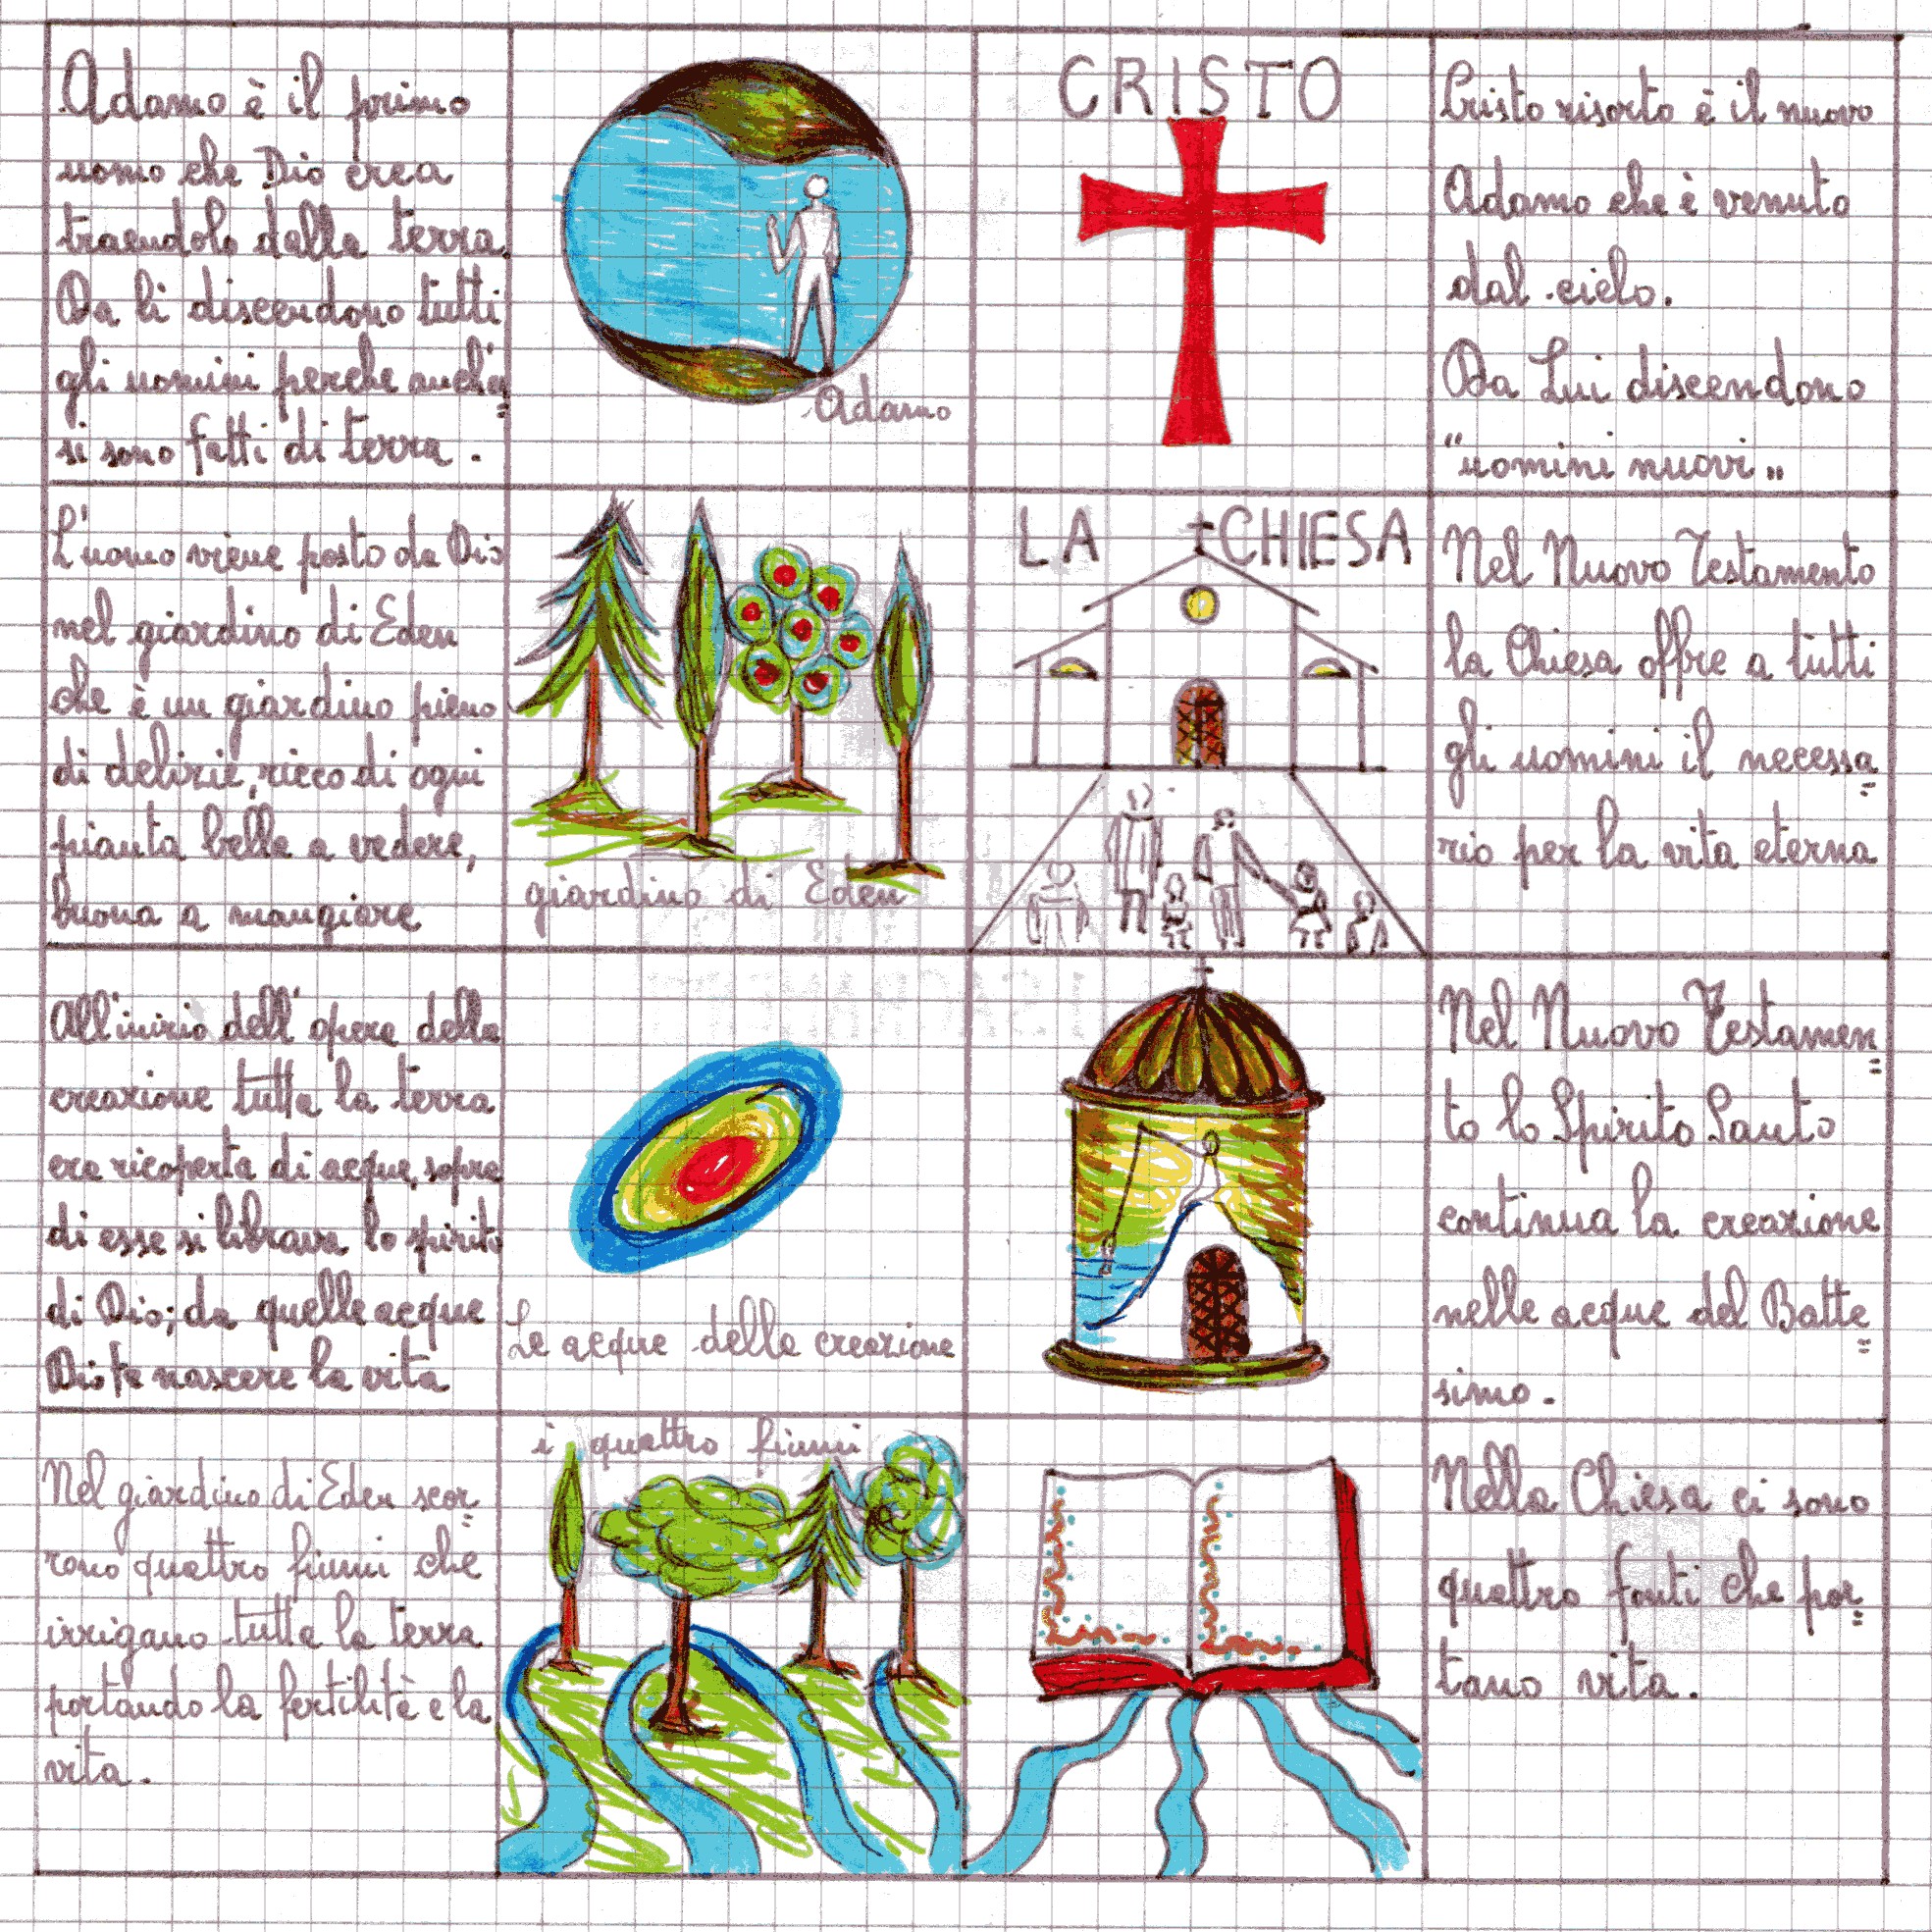 Adamo è il primo
uomo che Dio crea
traendolo dalla terra
Da lì discendono tutti
gli uomini perché anch'es
si sono fatti di terra.
Adamo
CRISTO
Cristo risorto è il nuovo
Adamo che è venuto
dal cielo.
Da Lui discendono
"uomini nuovi"
L'uomo viene posto da Dio
nel giardino di Eden
che è un giardino pieno
di delizie, ricco di ogni
pianta bella a vedere,
buona a mangiare
giardino di Eden
LA CHIESA
Nel Nuovo Testamento
la Chiesa offre a tutti
gli uomini il necessa
rio per la vita eterna
All'inizio dell'opera della
creazione tutta la terra
era ricoperta di acque, sopra
di esse si librava lo spirito
di Dio; da quelle acque
Dio fe nascere la vita
Le acque della creazione
Nel Nuovo Testamen
to lo Spirito Santo
continua la creazione
nelle acque del Batte
simo.
Nel giardino di Eden scor
rono quattro fiumi che
irrigano tutta la terra
portando la fertilità e la
vita.
i quattro fiumi
Nella Chiesa ci sono
quattro fonti che por
tano vita.